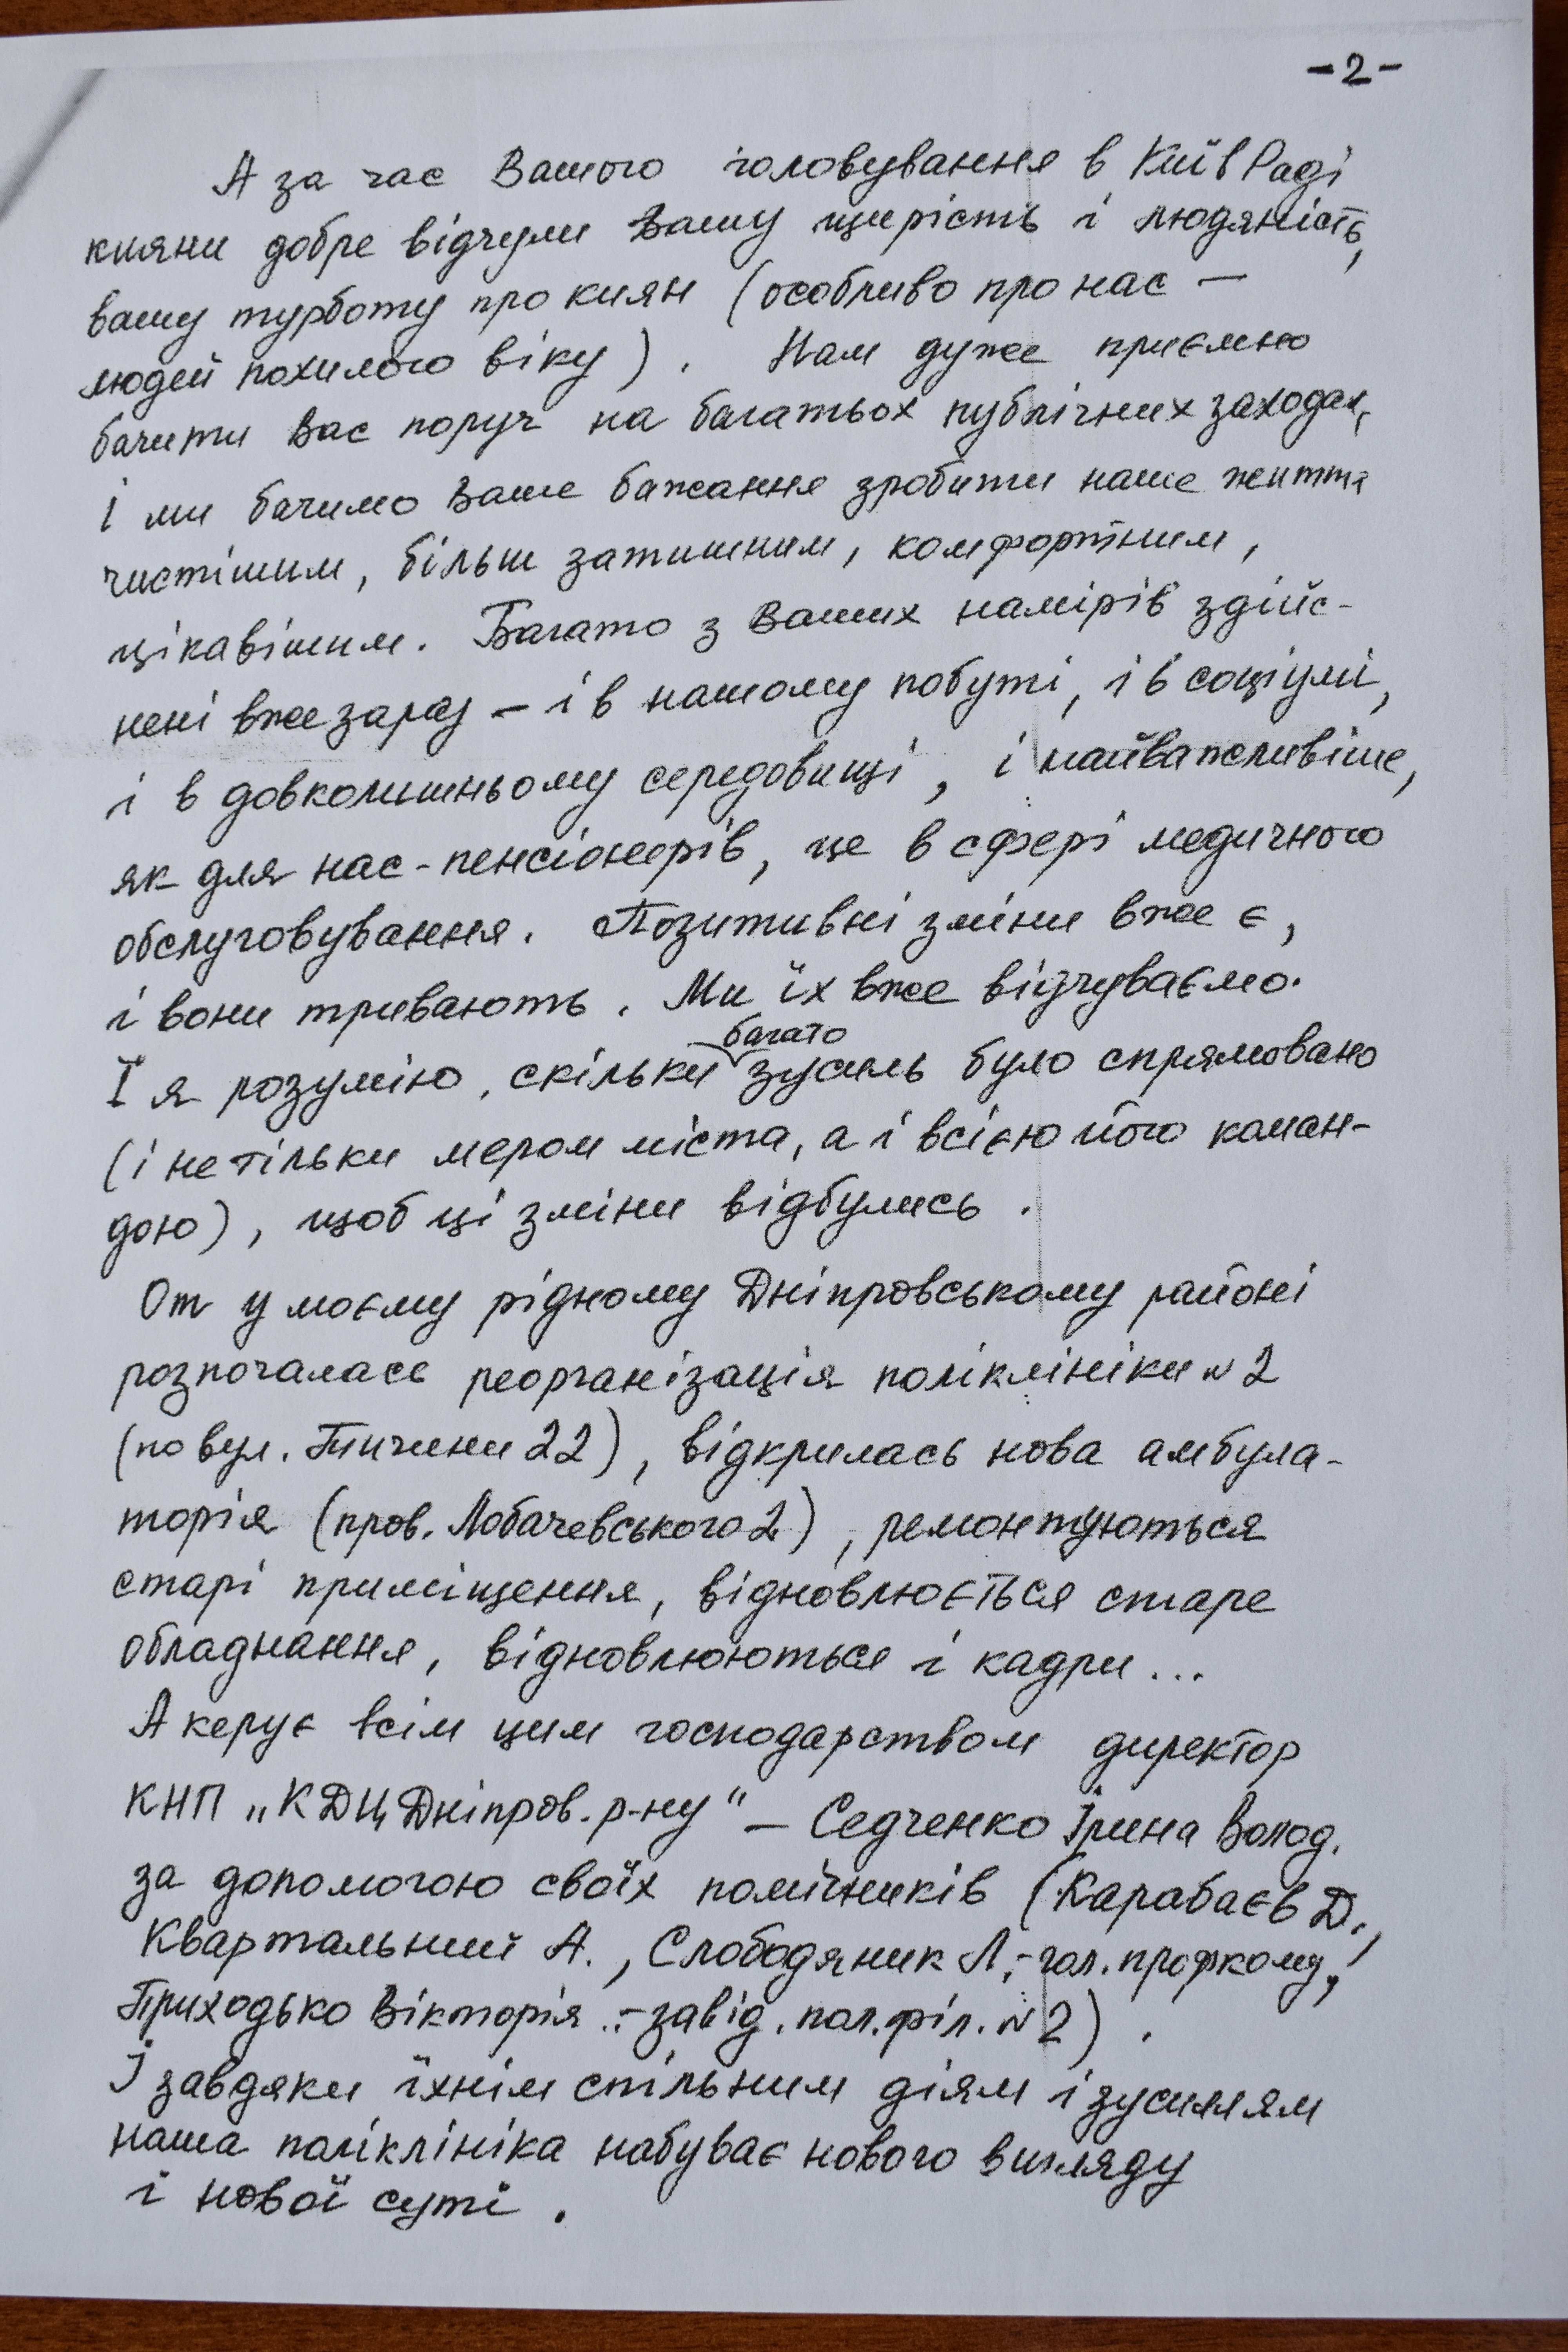 -2-
А за час Вашого головування в КиївРаді
кияни добре відчули Вашу щирість і людяність,
вашу турботу про киян (особливо про нас —
людей похилого віку). Нам дуже приємно
бачити Вас поруч на багатьох публічних заходах,
і ми бачимо Ваше бажання зробити наше життя
чистішим, більш затишним, комфортним,
цікавішим. Багато з Ваших намірів здійс-
нені вже зараз – і в нашому побуті, і в соціумі,
і в довколишньому середовищі, і найважливіше,
як для нас-пенсіонерів, це в сфері медичного
обслуговування. Позитивні зміни вже є,
і вони тривають. Ми їх вже відчуваємо.
І я розумію, скільки багато зусиль було спрямовано
(і не тільки мером міста, а і всією його коман-
дою), щоб ці зміни відбулись.
От у моєму рідному Дніпровському районі
розпочалась реорганізація поліклініки №2
(по вул. Тичини 22), відкрилась нова амбула-
торія (пров. Лобачевського 2), ремонтуються
старі приміщення, відновлюється старе
обладнання, відновлюються і кадри...
А керує всім цим господарством директор
КНП „КДЦ Дніпров. р-ну" – Седченко Ірина Волод.
за допомогою своїх помічників (Карабаєв Д.,
Квартальний А., Слободяник Л.-гол. профкому,
Приходько Вікторія.-завід. пол. філ. №2).
І завдяки їхнім спільним діям і зусиллям
наша поліклініка набуває нового вигляду
і нової суті.